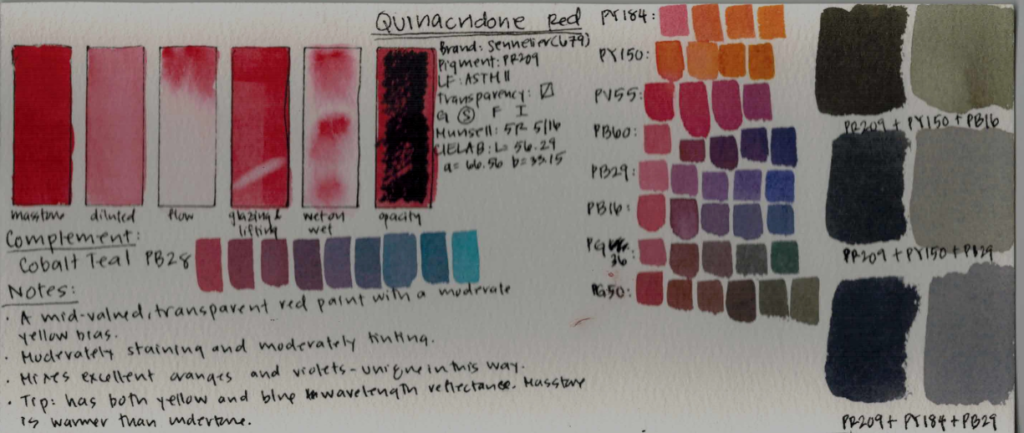 Quinacridone Red
Brand: Sennelier (679)
Pigment: PR209
LF: ASTM II
Transparency:
G S F I
Munsell: 5R 5/16
CIELAB: L= 56.29
a= 66.56 b= 33.15
masstone
diluted
flow
glazing &
lifting
wet on
wet
opacity
Complement:
Cobalt Teal PB28
Notes:
· A mid-valued, transparent red paint with a moderate
yellow bias.
· Moderately staining and moderately tinting.
· Mixes excellent oranges and violets - unique in this way.
· Tip: has both yellow and blue wavelength reflectance. Masstone
is warmer than undertone.
PY184:
PY150:
PV55
PB60:
PB29:
PB16:
PG
36
PG50:
PR209 + PY150 + PB16
PR209 + PY150 + PB29
PR209 + PY184 + PB29